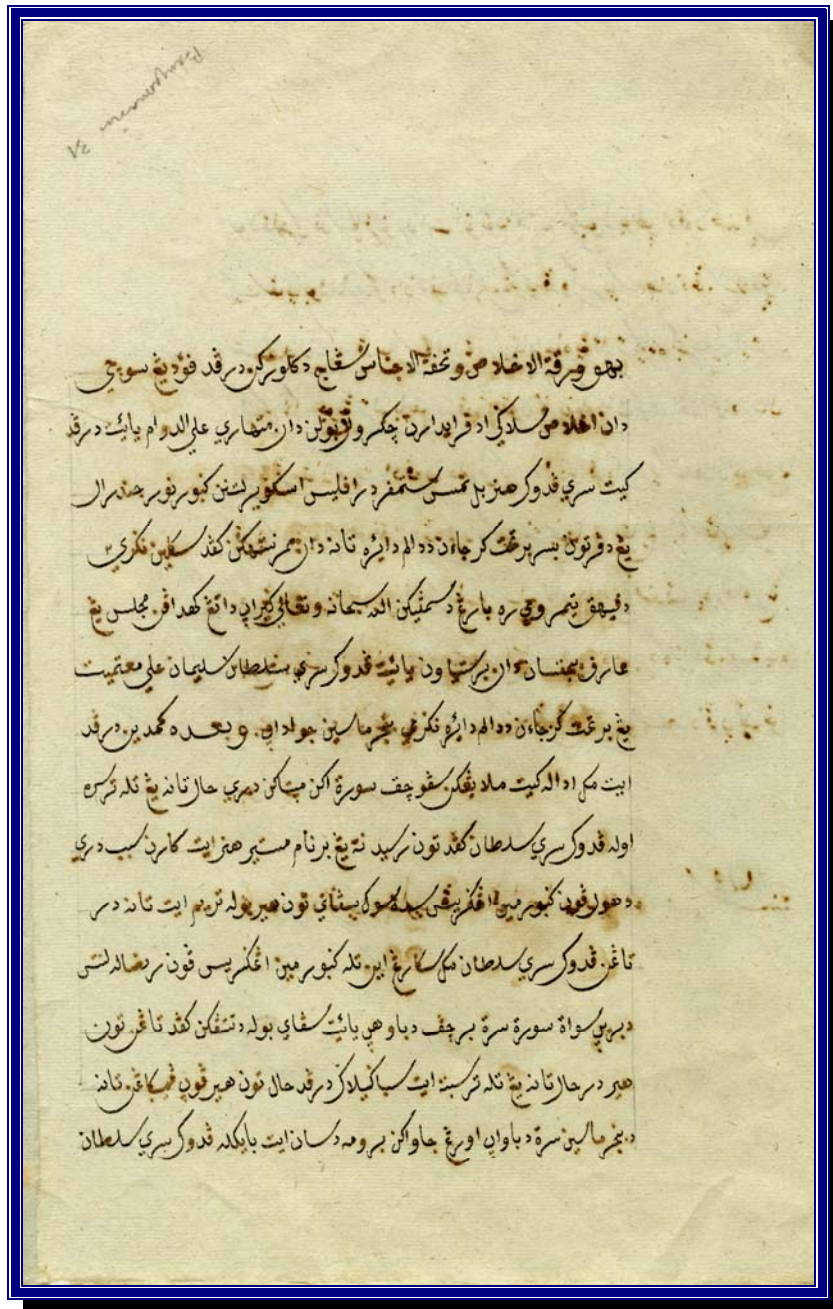 Banjarmasin
31
بهو ورقة الاخلاص وتحفة الاجناس يڠ دكلوركن درڤد فؤد يڠ سوچي
دان اخلاص سلاڬي اد قرايدارن چكروال بولن دان متهاري علي الدوام يائت درڤد
كيت سري ڤدوك هنربل تمس ستمفرد رافليس اسكوير لتنن كبورنور جندرال
يڠ دڤرتوان بسر برتخت كرجاءن ددالم دايره تانه دان ممرنتهكن كڤد سكلين نكري٢
دڤيهق تيمر بارڠ دسمڤيكن الله سبحانه وتعالى كيراڽ داتڠ كهداڤن مجلس يڠ
عارف بجقسان دان برستياون يائيت ڤدوك سري سلطان سليمان علي معتميت
يڠ برتخت كرجاءن ددالم دايره نكري بنجرماسين اداڽ وبعده كمدين درڤد
ايت مك اداله كيت ملايڠكن سڤوچق سورة اكن مڽتاكن دري حال تانه يڠ تله ترسره
اوله ڤدوك سري سلطان كڤد توان رسيدنة يڠ برنام مستير هير ايت كارن سبب دري
دهولو ڤون كبورمين اڠكريس سوك سڤاي توان هير بوله تريم ايت تانه در
تاڠن ڤدوك سري سلطان مك سكارڠ اين تله كبورمين اڠكريس ڤون رضاله
دبري سوات سورة سرة برچڤ دباوهڽ يائيت سڤاي بوله دتتڤكن كڤد تاڠن توان
هير در حال تانه يڠ تله ترسبة ايت سباڬيلاڬي درڤد حال توان هير ڤون تانه
دبنجرماسين سرة دباواڽ اورڠ جاو اكن برومه دسان ايت بايكله ڤدوك سري سلطان